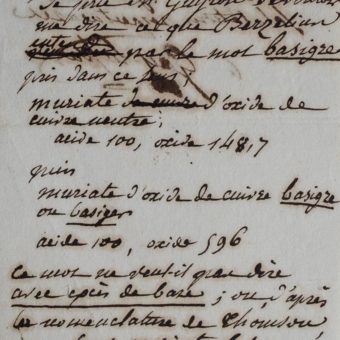 Je prie
me dire ce que Berzelius
par le mot basigre
pris dans ce sens;
muriate de cuivre d'oxide de
cuivre neutre;
acide 100, oxide 148,7
puis
muriate d'oxide de cuivre basigre
ou basiger
acide 100, oxide 596
ce mot ne veut-il pas dire
avec excès de base; ou, d'après
la nomenclature de Thomson,